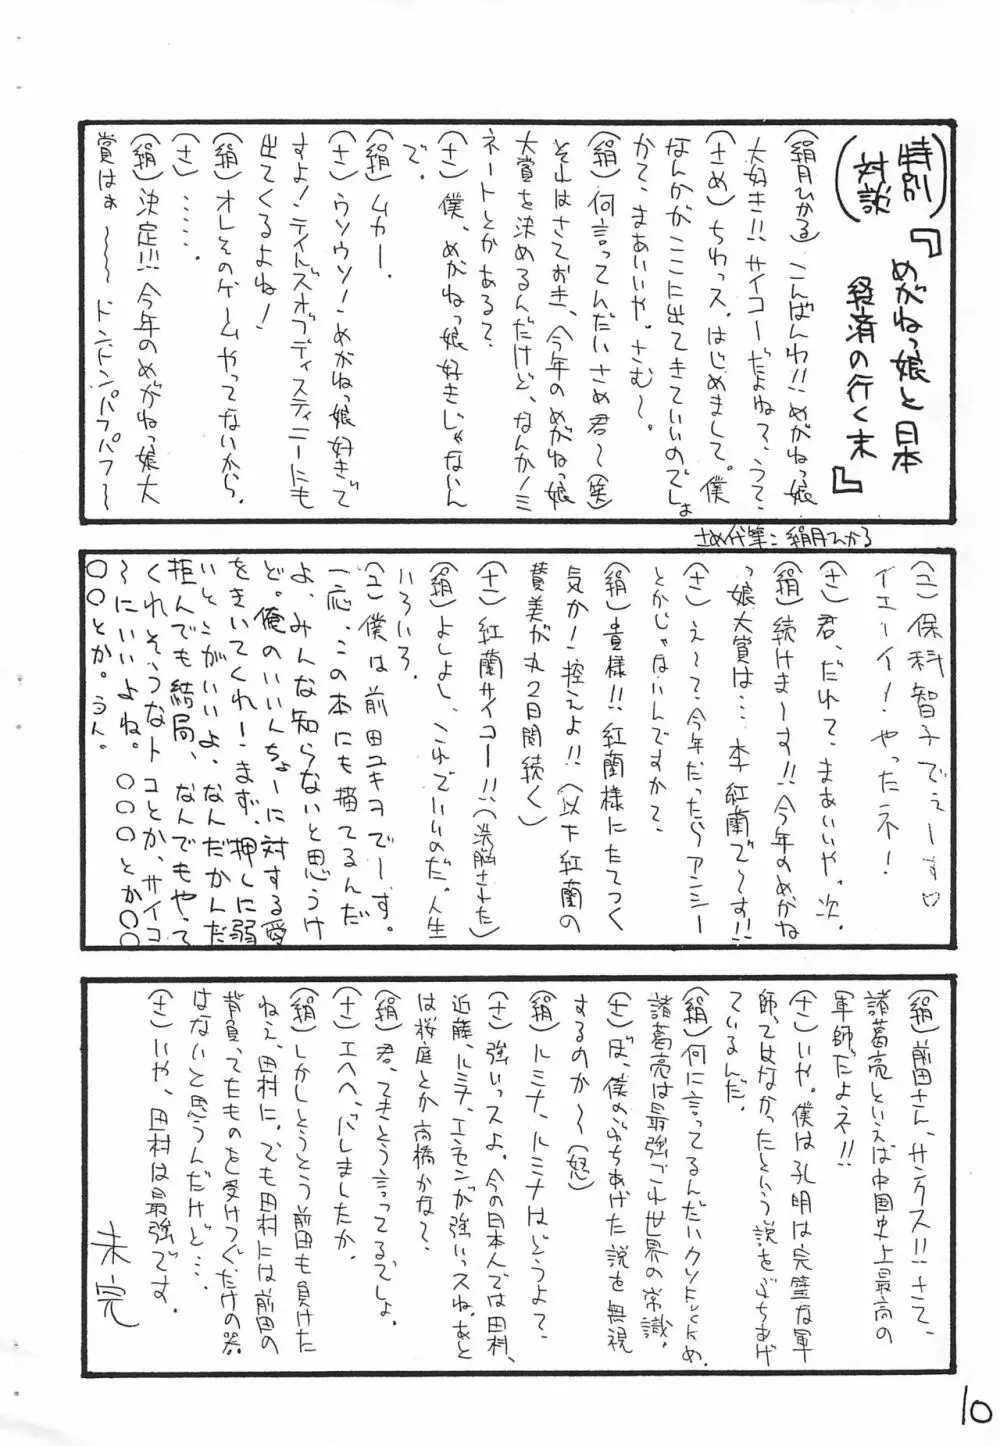 (特別対談)
『めがねっ娘と日本
経済の行く末』
(絹月ひかる)こんばんわ!!めがねっ娘
大好き!!サイコーだよねっ、うって、
(さめ)ちわっス。はじめまして。僕
なんかがここに出てきていいのでしょ
かて、まあいいや。さむ〜。
(絹)何言ってんだいさめ君〜(笑)
それはさておき、今年のめがねっ娘
大賞を決めるんだけど、なんかノミ
ネートとかある?
(さ)僕、めがねっ娘好きじゃないん
で。
(絹)ムカー。
(さ)ウソウソ!めがねっ娘好きで
すよ!テイルズオブディスティニーにも
出てくるよね!
(絹)オレそのゲームやってないから。
(さ)……。
(絹)決定!!!今年のめがねっ娘大
賞はぁ 〜〜〜ドンドンパフパフ〜
さめ代筆:絹月ひかる
(ユ)保科智子でぇーす♡
イエーイ!やったネ!
(さ)君、だれて、まあいいや。次。
(絹)続けま〜す!!今年のめがね
っ娘大賞は…李紅蘭で〜す!!
(さ)え〜て、今年だったらアンシー
とかじゃないんですかて、
(絹)貴様!!紅蘭様にたてつく
気かー控えよ!!(以下紅蘭の
賛美が丸2日間続く)
(さ)紅蘭サイコー!!(洗脳された)
(絹)よしよし、これでいいのだ。人生
いろいろ。
(ユ)僕は前田ユキヲでーす。
一応、この本にも描てるんだ
よ、みんな知らないと思うけ
ど。俺のいいんちょーに対する愛
をきいてくれーまず、押しに弱
いとこがいいよ、なんだかんだ
拒んでも結局、なんでもやって
くれそうなトコとか、サイコ
〜にいいよね。〇〇〇とか〇〇
〇〇とか。うん。
(絹)前田さん、サンクス!!さて、
諸葛亮といえば中国史上最高の
軍師だよネ!!
(さ)いや。僕は孔明は完璧な軍
師、ではなかったという説をぶちあげ
ているんだ。
(絹)何に言ってるんだいクソFuckめ、
諸葛亮は最強これ世界の常識。
(さ)ぼ、僕のぶちあげた説を無視
するのか〜(怒)
(絹)ルミナ、ルミナはどうよて、
(さ)強いっスよ。今の日本人では田村、
近藤、ルミナ、エンセンが強いっスね、あと
は桜庭とか高橋かな?
(絹)君、てきとう言ってるでしょ。
(さ)エヘヘ、バレましたか。
(絹)しかしとうとう前田も負けた
ねえ、田村に。でも田村には前田の
背負ってたものを受けつぐだけの器
はないと思うんだけど…。
(さ)いや、田村は最強です。
未完
10